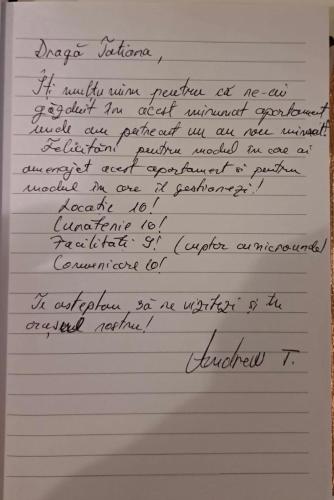 Dragă Tatiana,
Îți mulțumim pentru că ne-ai
găzduit în acest minunat apartament
unde am petrecut un an nou minunat!
Felicitări pentru modul în care ai
amenajat acest apartament și pentru
modul în care îl gestionezi!
Locație 10!
Curățenie 10!
Facilități 9! (cuptor cu microunde)
Comunicare 10!
Te așteptăm să ne vizitezi și tu
orașul nostru!
Andrew T.